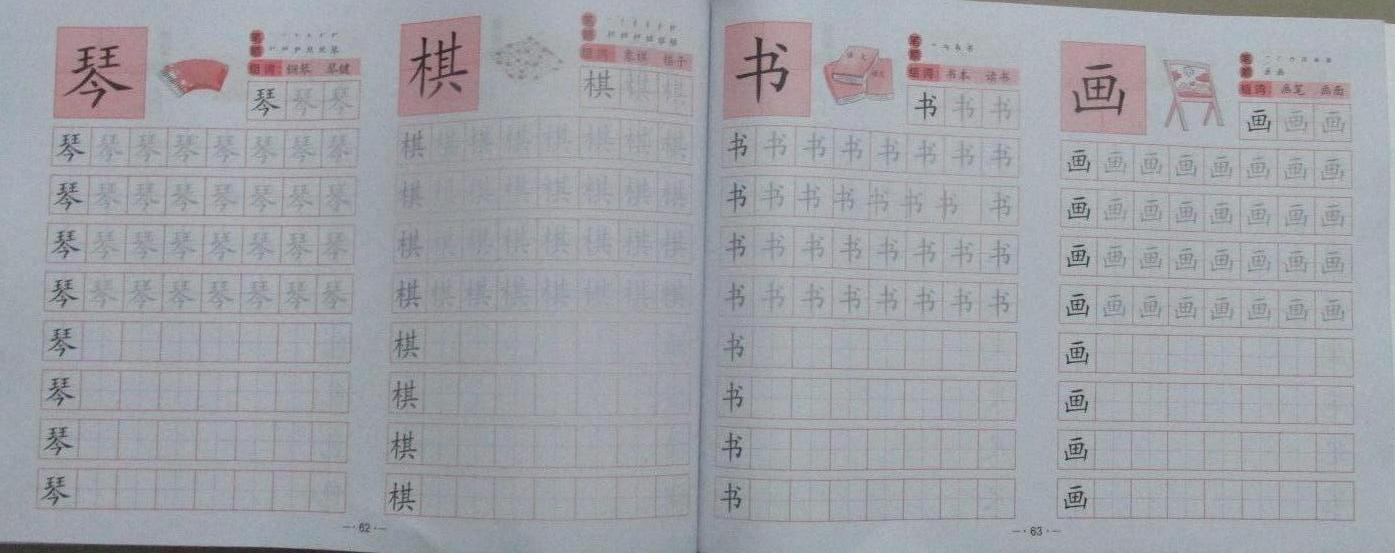 琴
笔顺
组词：钢琴 琴键
琴琴琴
琴琴琴琴琴琴琴琴
琴琴琴琴琴琴琴琴
琴琴琴琴琴琴琴琴
琴琴琴琴琴琴琴琴
琴
琴
琴
琴
棋
笔顺
组词：象棋 棋子
棋棋棋
棋棋棋棋棋棋棋棋
棋棋棋棋棋棋棋棋
棋棋棋棋棋棋棋棋
棋棋棋棋棋棋棋棋
棋
棋
棋
棋
—·62·—
书
语文
笔顺
组词：书本 读书
书书书
书书书书书书书书
书书书书书书书书
书书书书书书书书
书书书书书书书书
书
书
书
书
画
笔顺
组词：画笔 画面
画画画
画画画画画画画画
画画画画画画画画
画画画画画画画画
画画画画画画画画
画
画
画
画
—·63·—